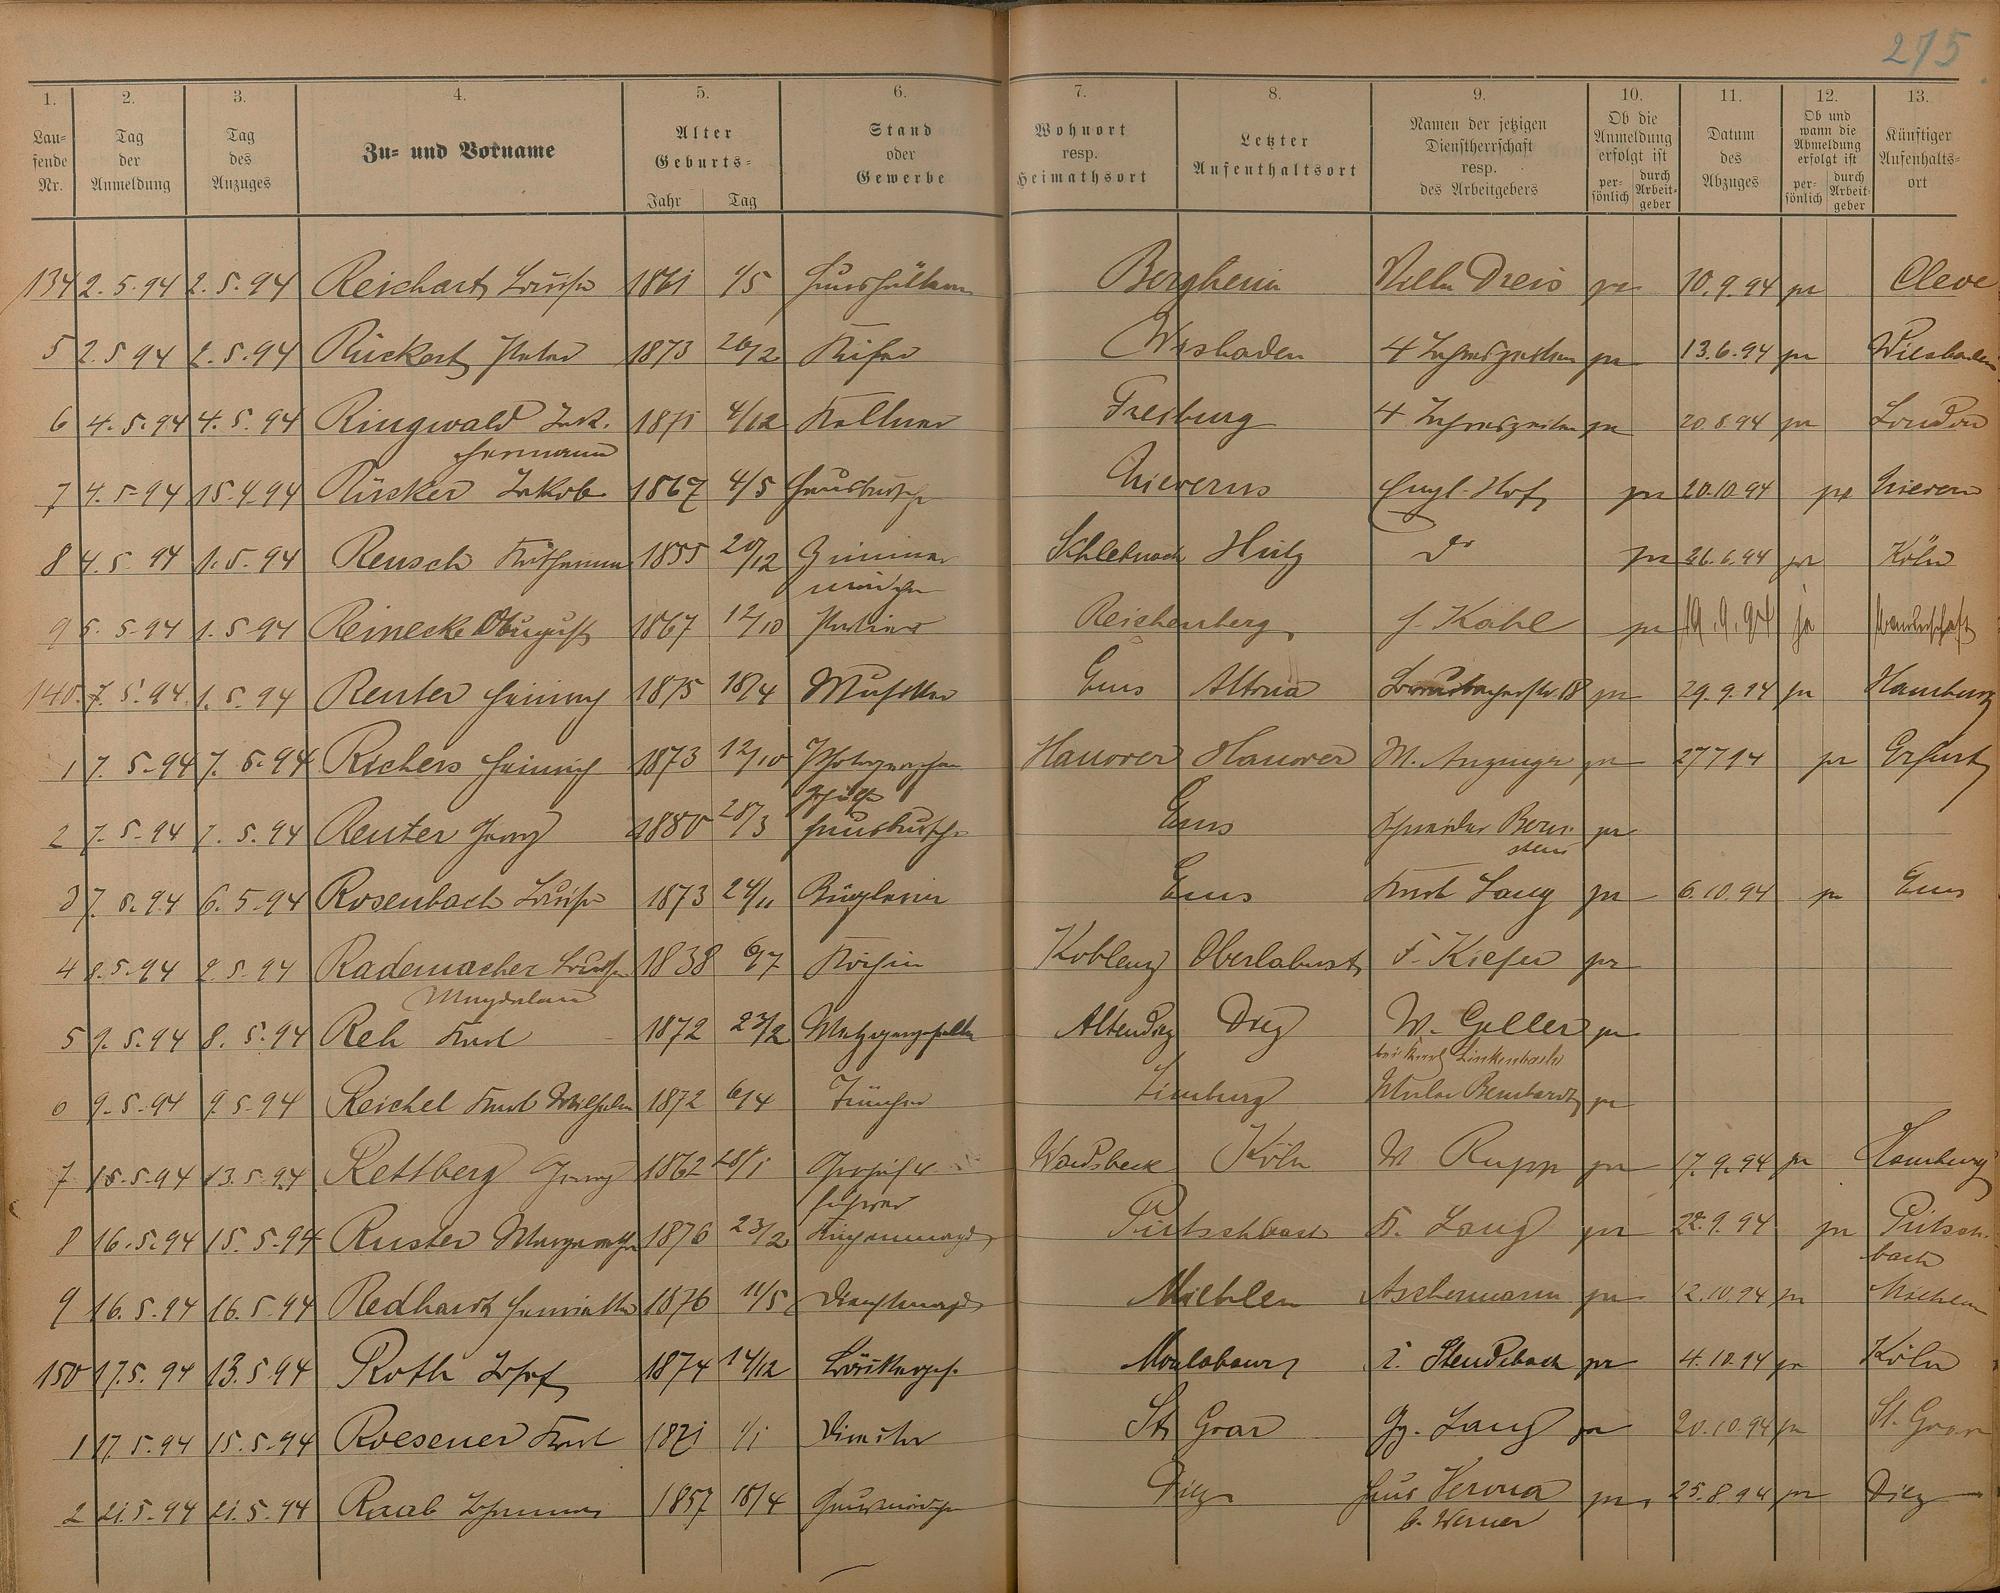 275
1. 2. 3. 4. 5. 6. 7. 8. 9. 10. 11. 12. 13.
Lau=
fende
Nr.
Tag
der
Anmeldung
Tag
des
Anzuges
Zu= und Vorname
Alter
Geburts=
Jahr Tag
Stand
oder
Gewerbe
Wohnort
resp.
Heimathsort
Letzter
Aufenthaltsort
Namen der jetzigen
Dienstherrschaft
resp.
des Arbeitgebers
Ob die
Anmeldung
erfolgt ist
per=
sönlich
durch
Arbeit=
geber
Datum
des
Abzuges
Ob und
wann die
Abmeldung
erfolgt ist
per=
sönlich
durch
Arbeit=
geber
Künftiger
Aufenhalts=
ort
134 2.5.94 2.5.94 Reichart Louise 1861 1/5 Haushälterin Bergheim Villa Dreis pr 10.9.94 pr Cleve
5 2.5 94 2.5.94 Rückert Peter 1873 26/2 Küfer Wisbaden 4 Jahreszeiten pr 13.6.94 pr Wiesbaden
6 4.5.94 4.5.94 Ringwald Jak. 1871 4/12 Kellner Freiburg 4 Jahreszeiten pr 20 8.94 pr London
Hermann
7 4.5.94 15.4.94 Rücker Jakob 1867 4/5 Hausbursche Nieverns Engl. Hof pr 20.10.94 pr Nievern
8 4.5.94 1.5.94 Reusch Katharina 1855 20/12 Zimmer Schlebusch do pr 26.6.94 pr Köln
mädchen
9 5.5.94 1.5.94 Reinecke August 1867 12/10 Portier Reichenberg J. Kahl pr 19.9.94 ja Wanderschaft
140. 7.5.94. 1.5.94 Reuter Heinrich 1875 18/4 Musiker Ems Altona 18 pr 29.9.94 pr Hamburg
1 7.5.94 7.5.94 Richers Heinrich 1873 12/10 Photographen Hanover Hanover M. Anzinger pr 27 7 94 pr Erfurt
Gehülfe
2 7.5.94 7.5.94 Reuter Georg 1880 28/3 Hausbursche Ems Schneider Bern pr
stein
3 7.5.94 6.5.94 Rosenbach Louise 1873 24/11 Büglerin Ems Karl Lang pr 6.10.94 pr Ems
4 8.5.94 2.5.94 Rademacher Louise 1838 6/7 Köchin Koblenz Oberlahnst. F. Kiefer pr
Magdalena
5 9.5.94 8.5.94 Reh Karl 1872 23/2 Metzgergeselle Altendiez Diez W. Geller pr
bei Karl Linkenbach
6 9.5.94 9.5.94 Reichel Karl Wilhelm 1872 6/4 Tüncher Limburg Maler Bernhardt pr
7 15.5.94 13.5.94 Rettberg Georg 1862 28/1 Geschäfts Wandsbeck Köln W Rupp pr 17.9.94 pr Hamburg
führer
8 16.5.94 15.5.94 Ruster Margaretha 1876 23/2 Küchenmagd Pütschbach K. Lang pr 22.9.94 pr Pütsch
bach
9 16.5.94 16.5.94 Redhardt Henriette 1876 11/5 Dienstmagd Miehlen Aschermann pr 12.10.94 pr Miehlen
150 17.5.94 13.5.94 Roth Josef 1874 14/12 Bäckerges. Montabaur Stendebach pr 4.10.94 pr Köln
1 17.5.94 15.5.94 Roesener Karl 1871 1/1 St. Goar Gg. Lang pr 20.10.94 pr St. Goar
2 21.5.94 21.5.94 Raab Johanna 1857 18/4 Hausmädchen Diez Haus Verona pr 25.8.94 pr Diez
b. Werner